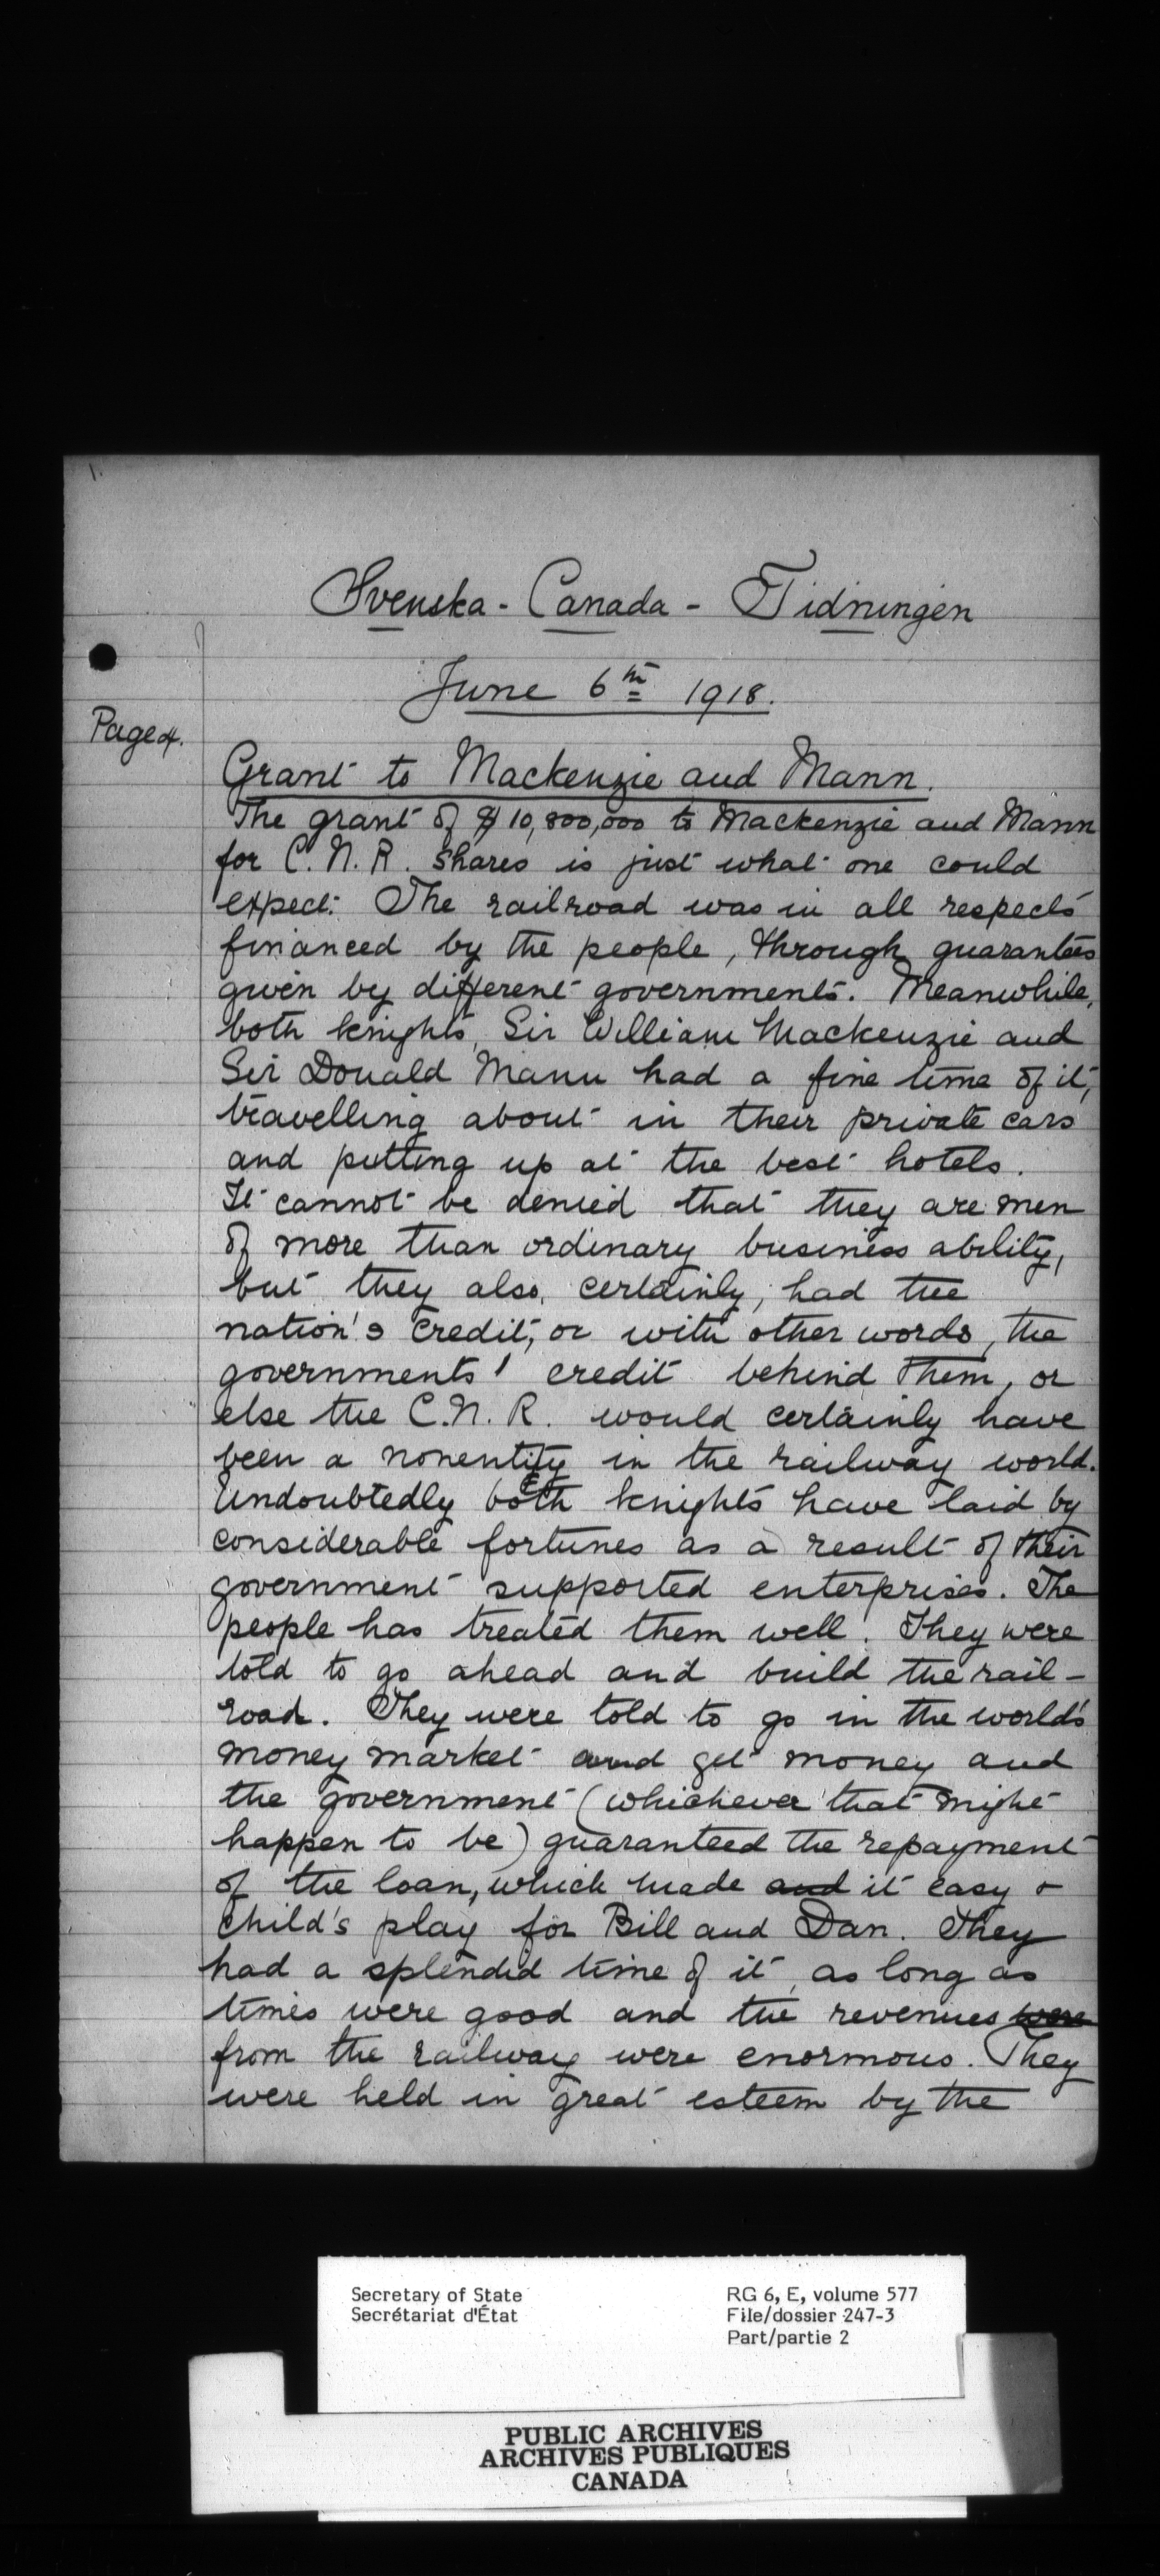 1.
Svenska - Canada - Tidningen
June 6th 1918.
Page 4.
Grant to Mackenzie and Mann.
The grant of $10,800,000 to Mackenzie and Mann
for C. N. R. shares is just what one could
expect. The railroad was in all respects
financed by the people, through guarantees
given by different governments. Meanwhile,
both knights, Sir William Mackenzie and
Sir Donald Mann had a fine time of it,
travelling about in their private cars
and putting up at the best hotels.
It cannot be denied that they are men
of more than ordinary business ability,
but they also, certainly, had the
nation's credit, or with other words, the
governments' credit behind them, or
else the C.N.R. would certainly have
been a nonentity in the railway world.
Undoubtedly both knights have laid by
considerable fortunes as a result of their
government supported enterprises. The
people has treated them well. They were
told to go ahead and build the rail-
road. They were told to go in the world's
money market and get money and
the government (whichever that might
happen to be) guaranteed the repayment
of the loan, which made and it easy &
child's play for Bill and Dan. They
had a splendid time of it, as long as
times were good and the revenues were
from the railway were enormous. They
were held in great esteem by the
Secretary of State
Secrétariat d'État
RG 6, E, volume 577
File/dossier 247-3
Part/partie 2
PUBLIC ARCHIVES
ARCHIVES PUBLIQUES
CANADA